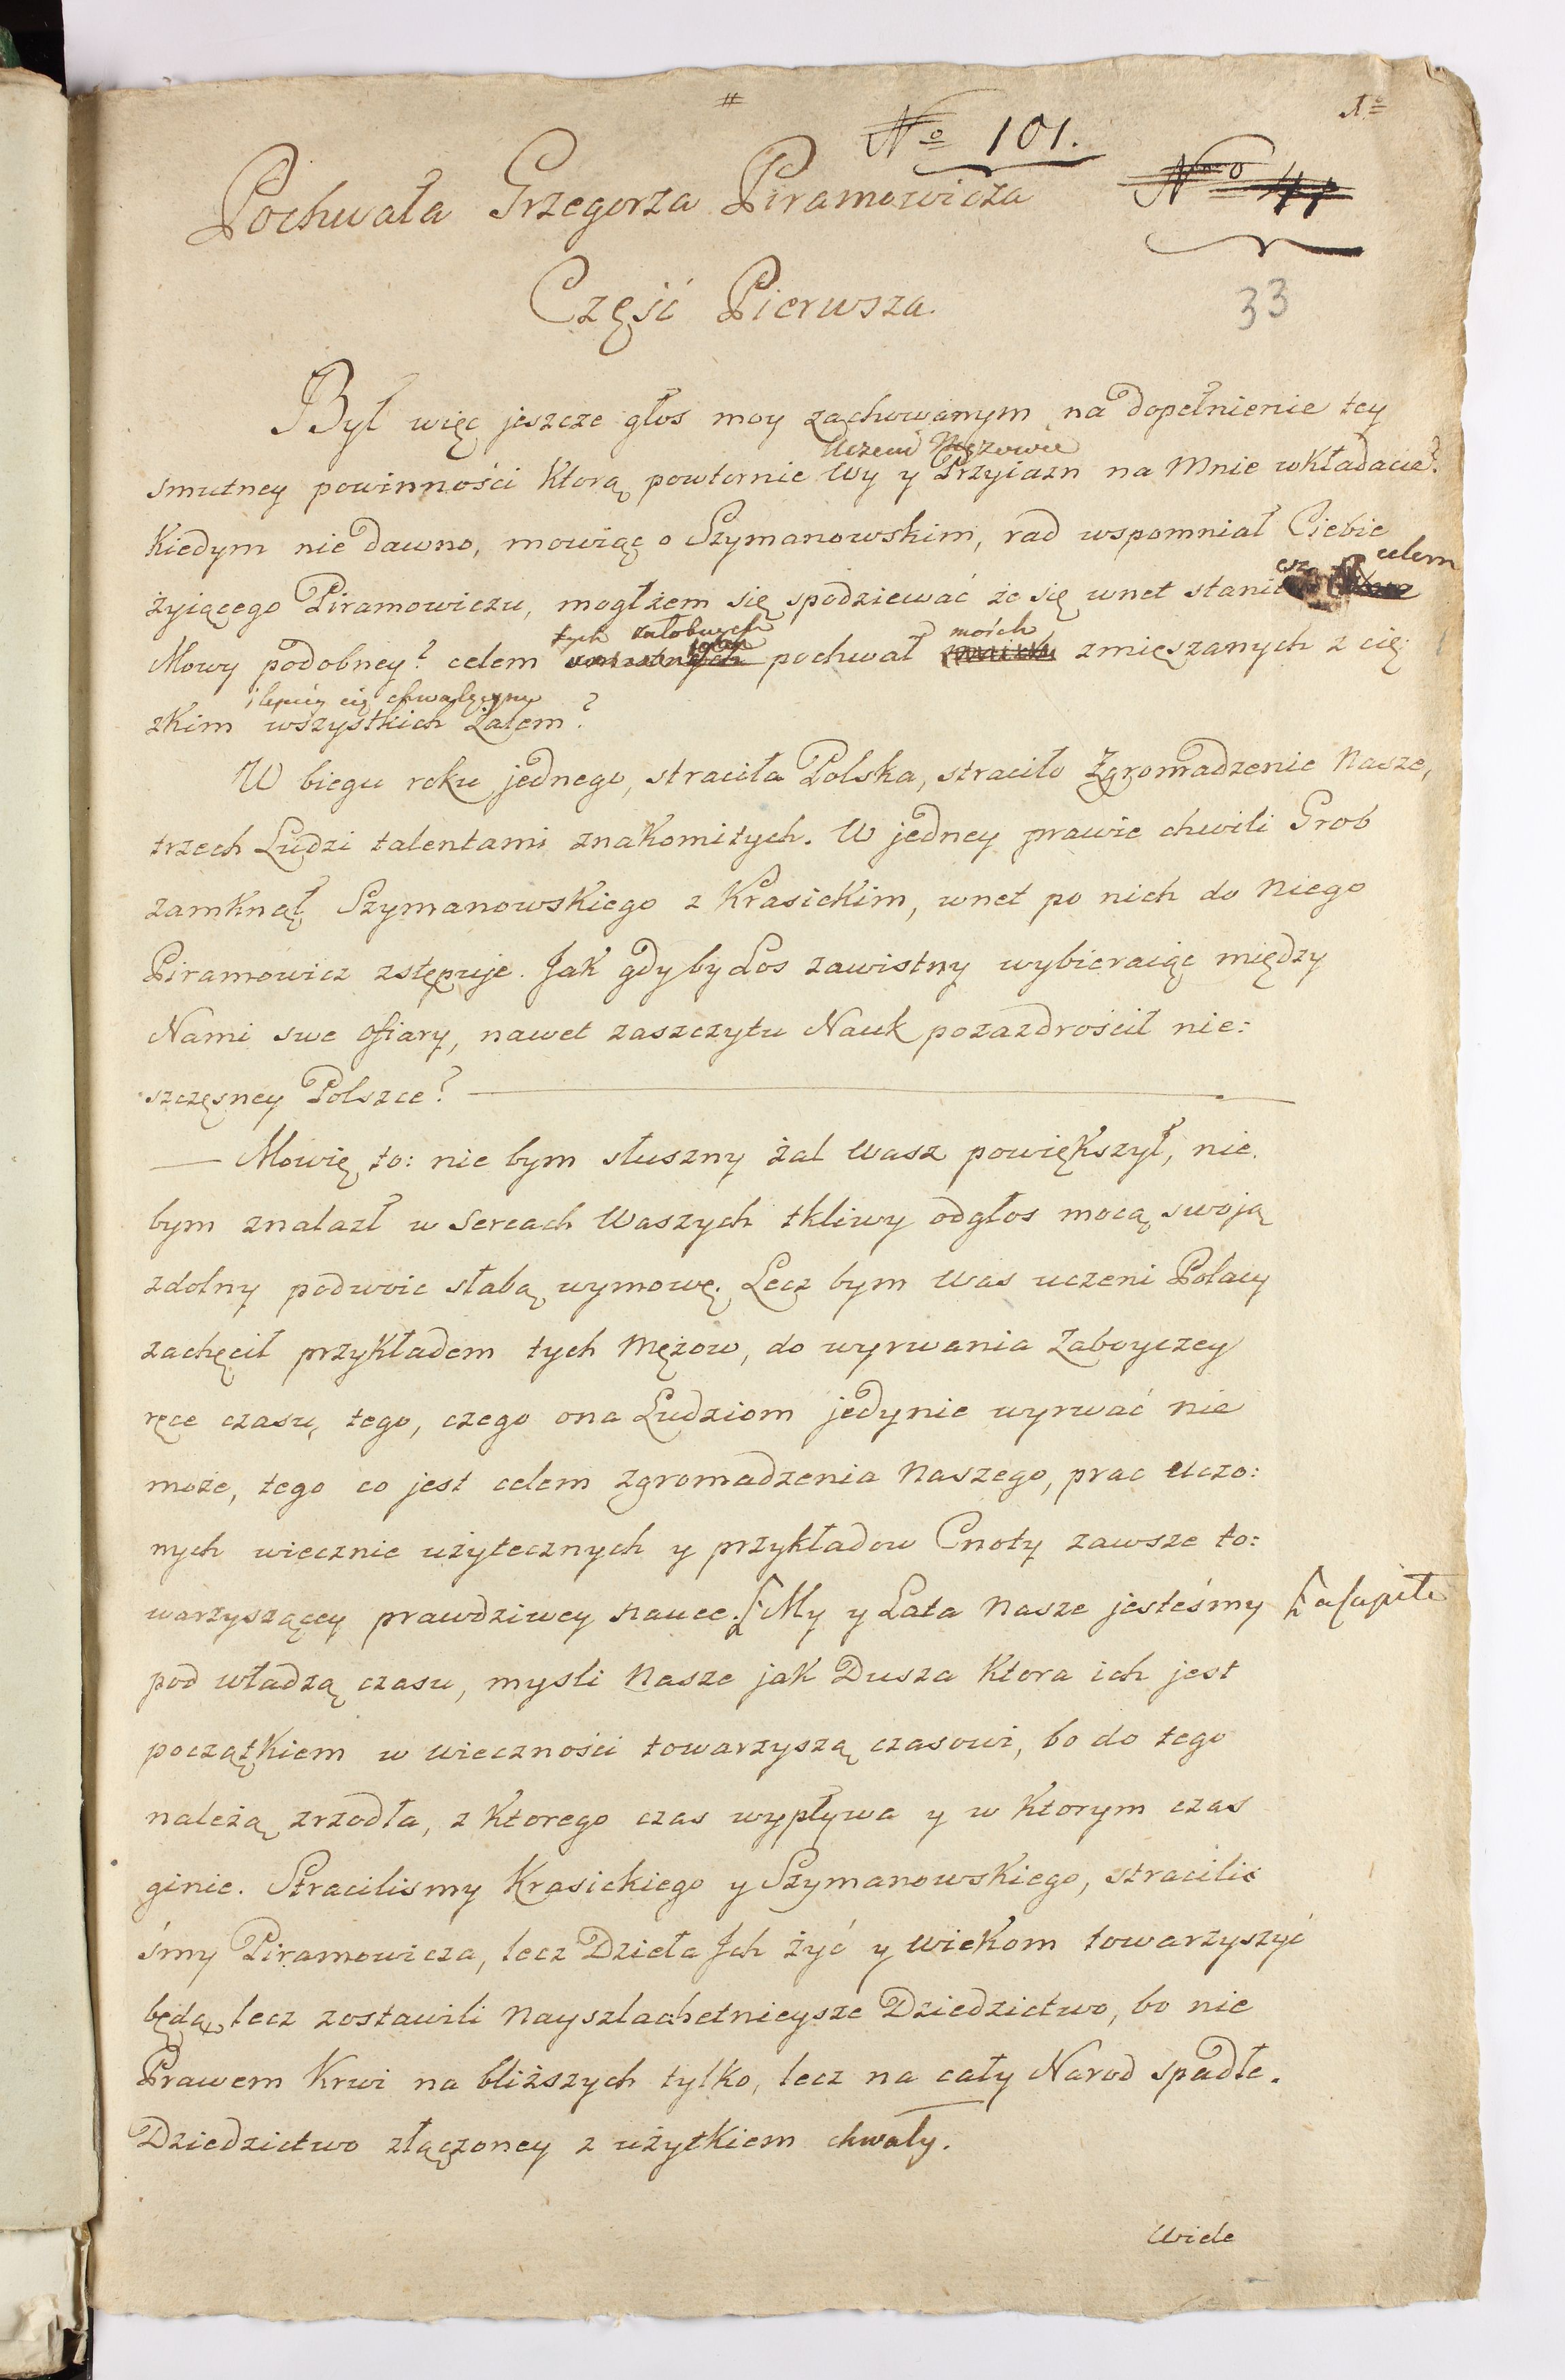 #
1º
Nº 101.
Nº 41
Pochwała Grzegorza Piramowicza
33
Część Pierwsza.
Był więc jeszcze głos moy zachowanym na dopełnienie tey
Uczeni Mężowie
smutney powinności ktorą powtornie Wy y Przyiazn na Mnie wkładacie?
Kiedym nie dawno, mowiąc o Szymanowskim, rad wspomniał Ciebie
esz celem
żyiącego Piramowiczu, mogłżem się spodziewać że się wnet stanie
tych żałobnych moich
Mowy podobney? celem pochwał zmięszanych z cię:
zkim wszystkich Żalem?
W biegu roku jednego, straciła Polska, straciło Zgromadzenie Nasze,
trzech Ludzi talentami znakomitych. W jedney prawie chwili Grob
zamknął Szymanowskiego z Krasickim, wnet po nich do Niego
Piramowicz zstępuje. Jak gdyby Los zawistny wybieraiąc między
Nami swe ofiary, nawet zaszczytu Nauk pozazdrościł nie:
szczęsney Polszce?
— Mowię to: nie bym słuszny żal Wasz powiększył, nie
bym znalazł w Sercach Waszych tkliwy odgłos mocą swoją
zdolny podwoic słabą wymowę. Lecz bym Was uczeni Polacy
zachęcił przykładem tych Mężow, do wyrwania Zaboyczey
ręce czasu, tego, czego ona Ludziom jedynie wyrwać nie
może, tego co jest celem Zgromadzenia Naszego, prac Uczo:
nych wiecznie użytecznych y przykładow Cnoty zawsze to:
warzyszącey prawdziwey nauce. [My y Lata Nasze jesteśmy [a capite
pod władzą czasu, mysli Nasze jak Dusza ktora ich jest
początkiem w wieczności towarzyszą czasowi, bo do tego
należą zrzodła, z ktorego czas wypływa y w ktorym czas
ginie. Stracilismy Krasickiego y Szymanowskiego, stracili
śmy Piramowicza, lecz Dzieła Jch żyć y wiekom towarzyszyć
będą, lecz zostawili Nayszlachetnieysze Dziedzictwo, bo nie
Prawem Krwi na bliższych tylko, lecz na cały Narod spadłe.
Dziedzictwo złączoney z użytkiem chwały.
Wiele